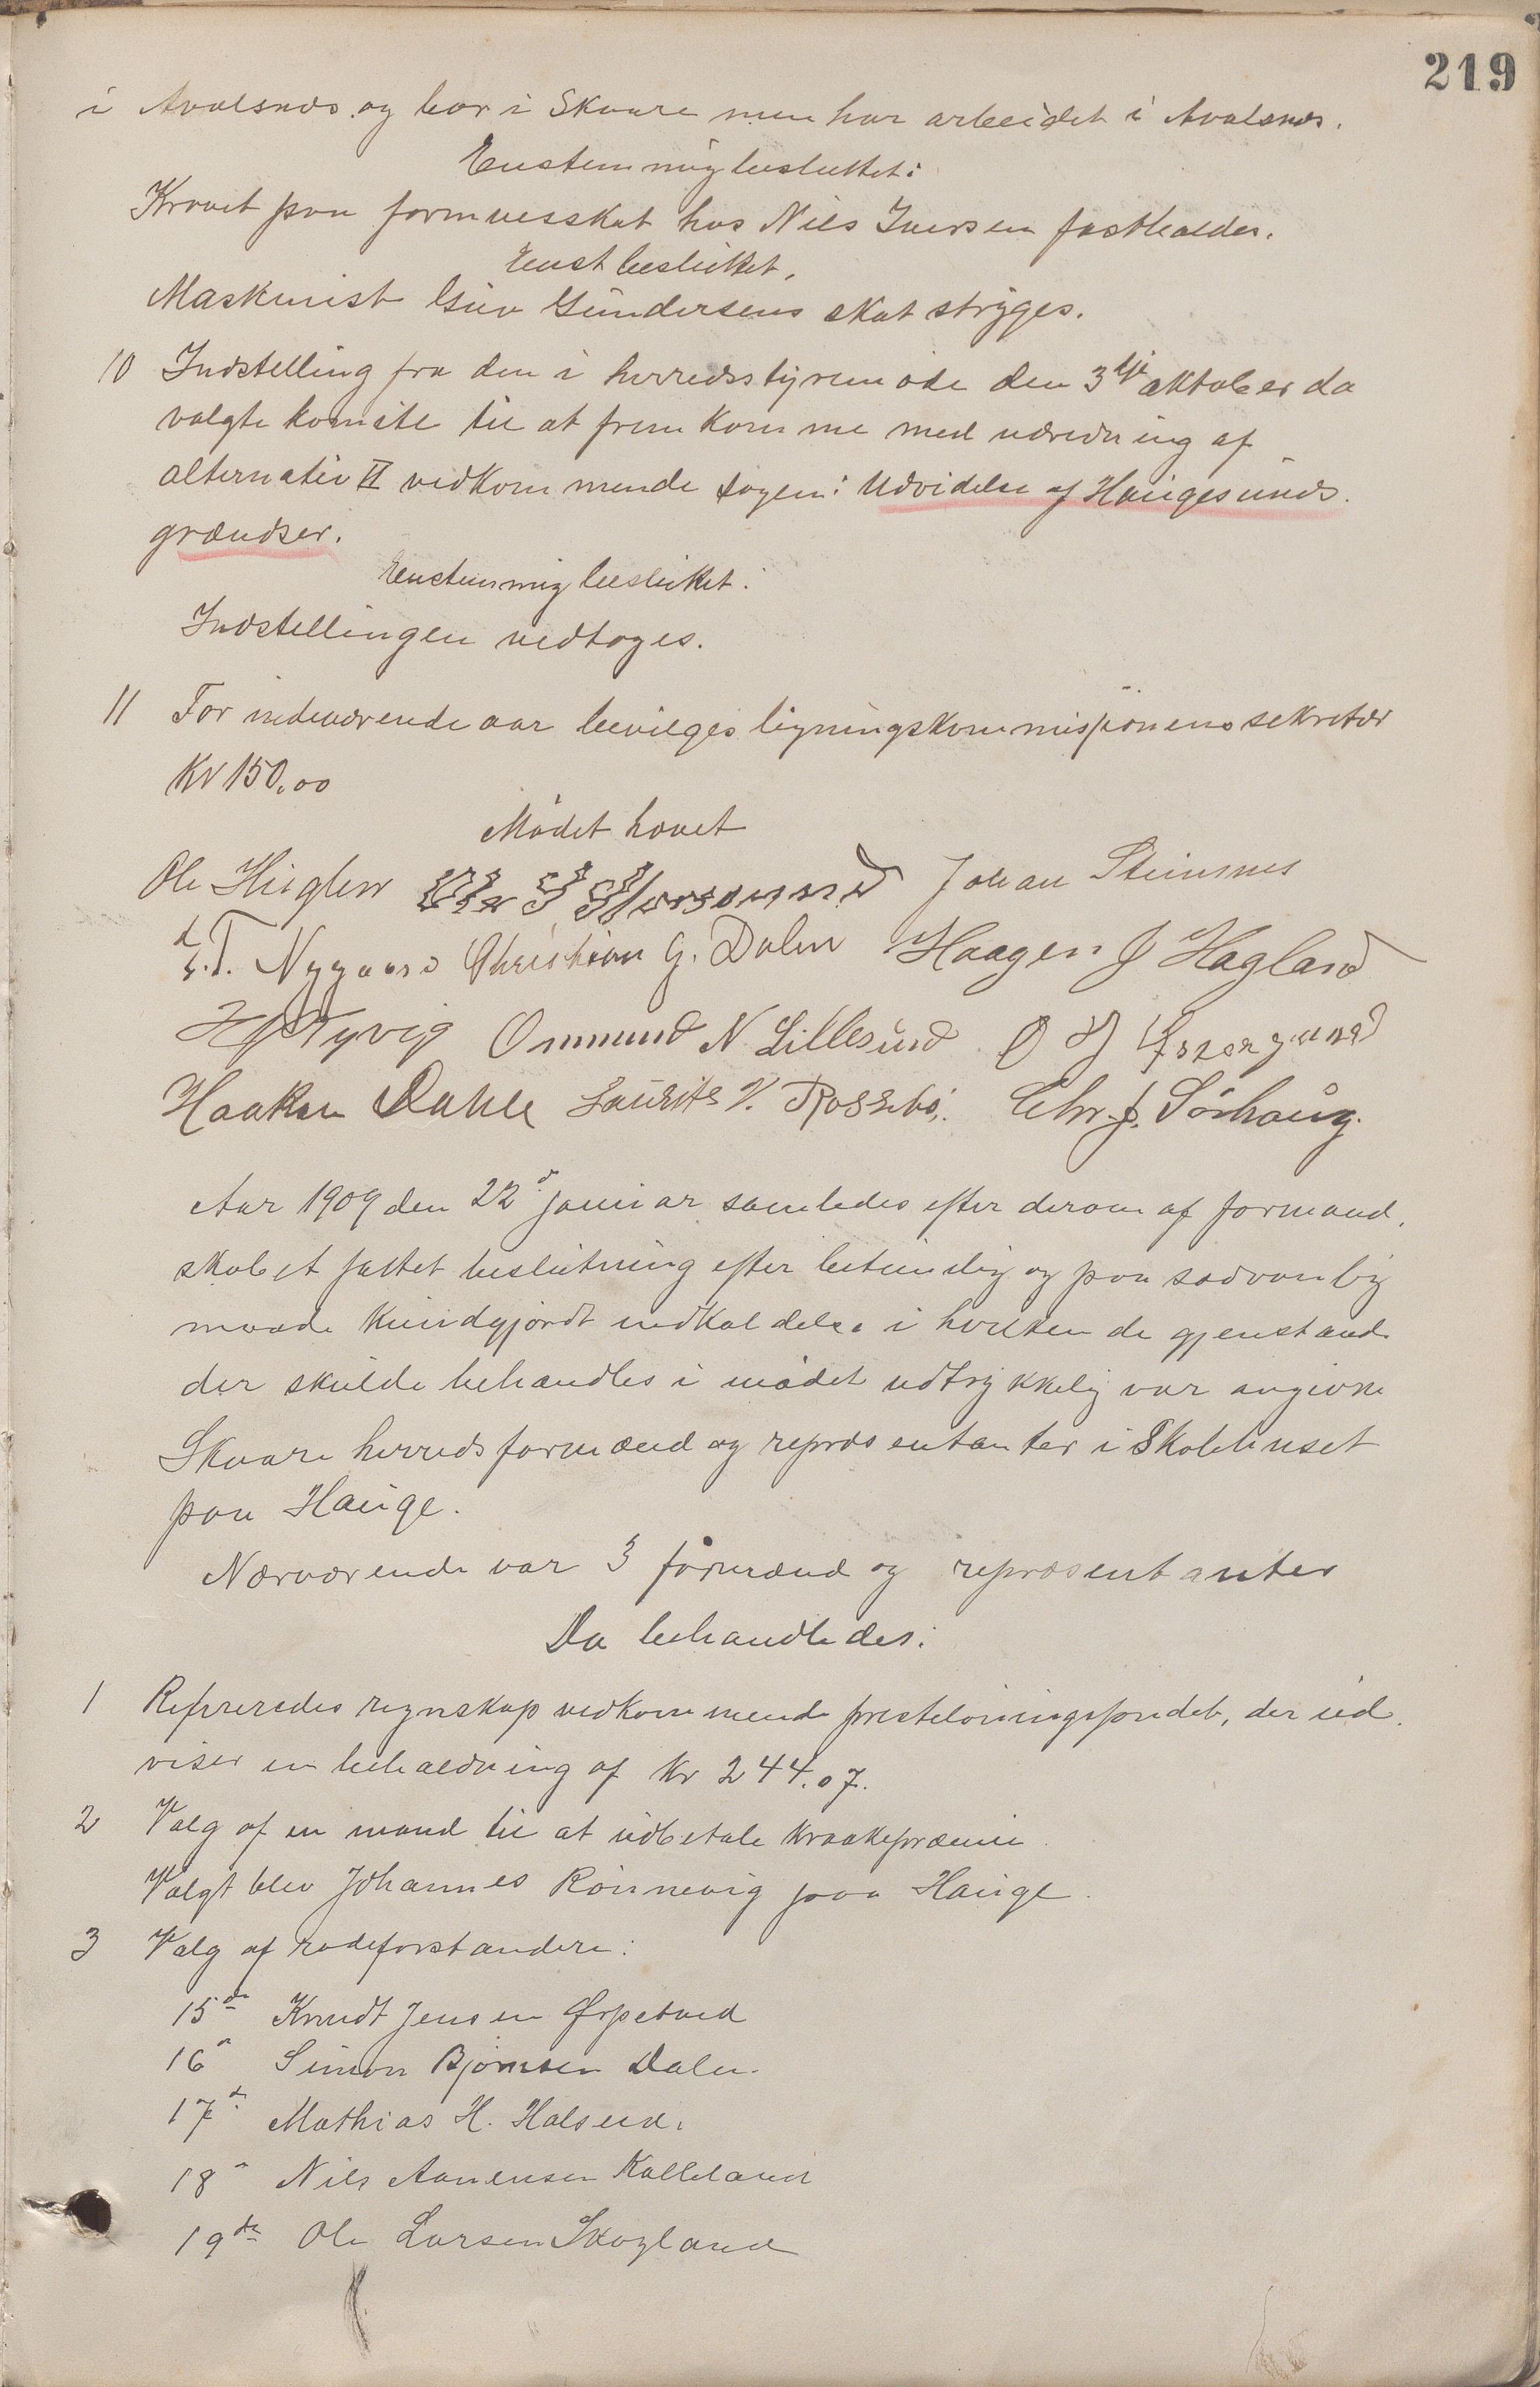 219
i Avalsnæs og bor i Skaare men har arbeidet i Avalsnæs.
Enstemmig besluttet:
Kravet paa formuesskat hos Nils Iversen fastholdes.
Enst besluttet.
Maskinist Guv Gundersens skat stryges.
10 Indstelling fra den i herredsstyremøde den 3dje oktober da
valgte komite til at fremkomme med utredning af
alternativ II vedkommende sagen: Udvidelse af Haugesunds
grændser.
Enstemmig besluttet:
Indstellingen vedtoges.
11 For indeværende aar bevilges ligningskommissionens sekretær
Kr 150.00
Mødet hævet
Ole Hinglen Johan Steinsnes
L. T. Nygaard Christian G. Dalen Haagen J Hagland
Tyvig Ommund N Lillesund O J
Haakon Dahle Laurits V. Rossebø. Chr. J. Sørhaug.
Aar 1909 den 22d januar samledes efter derom af formand.
skabet fattet beslutning efter betimelig og paa sædvanlig
maade kundgjordt indkaldelse i hvilken de gjenstande
der skulde behandles i mødet udtrykkelig var angivne
Skaare herredsformænd og repræsentanter i Skolehuset
paa Hauge.
Nærværende var 3 formænd og repræsentanter
Da behandledes:
1 Refereredes regnskap vedkommende prestelønningsfondet, der ud.
viser en beholdning af Kr 244.07.
2 Valg af en mand til at udbetale kraakepræmie.
Valgt blev Johannes Rønnevig paa Hauge.
3 Valg af rodeforstandere:
15de Knudt Jensen Ørpetved
16d Simon Bjørnsen Dalen.
17d Mathias H. Halseid.
18d Nils Aanensen Kalleland
19de Ole Larsen Skogland